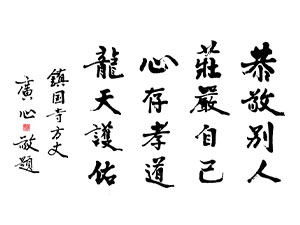 恭敬别人
莊嚴自己
心存孝道
龍天護佑
鎮国寺方丈
廣心敬題